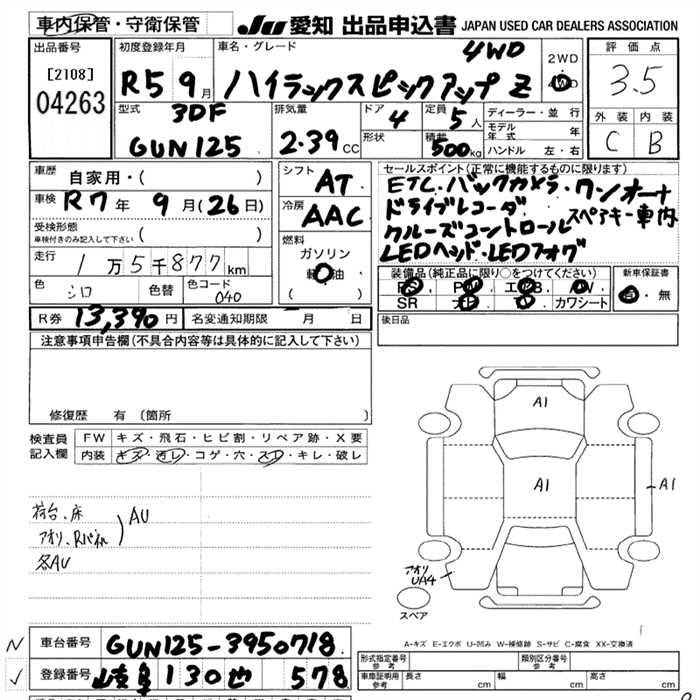 車内保管・守衛保管
JU 愛知 出品申込書 JAPAN USED CAR DEALERS ASSOCIATION
出品番号
[2108]
04263
初度登録年月
R5 9月
車名・グレード
4WD
ハイラックスピックアップ Z
2WD
4WD
評価点
3.5
外装 内装
C B
型式
3DF
GUN125
排気量
2.39 CC
ドア
4
形状
定員
5人
積載
500kg
ディーラー・並行
モデル年式 年
ハンドル 左・右
車歴
自家用・( )
車検
R7年 9月(26日)
受検形態
車検付きのみ記入して下さい ( )
走行
1万5千877km
色
シロ
色替
色コード
040
シフト
AT
冷房
AAC
燃料
ガソリン
軽油
( )
セールスポイント(正常に機能するものに限ります)
ETC・バックカメラ・ワンオーナ
ドライブレコーダ スペアキー車内
クルーズコントロール
LEDヘッド・LEDフォグ
装備品(純正品に限り○をつけてください)
PS PW エアB AW
SR カワシート
新車保証書
有・無
R券 13,390円
名変通知期限 月 日
後日品
注意事項申告欄(不具合内容等は具体的に記入して下さい)
修復歴 有(箇所
検査員記入欄
FW キズ・飛石・ヒビ割・リペア跡・X要
内装 キズ・汚レ・コゲ・穴・スレ・キレ・破レ
荷台、床
アオリ、Rバンパ
AU
各AU
A1
A1
A1
アオリ
UA4
スペア
A-キズ E-エクボ U-凹み W-補修跡 S-サビ C-腐食 XX-交換済
車台番号 GUN125-3950718
登録番号 岐阜 130 も 578
形式指定番号
参考
類別区分番号
参考
車庫証明用
参考
長さ cm 幅 cm 高さ cm